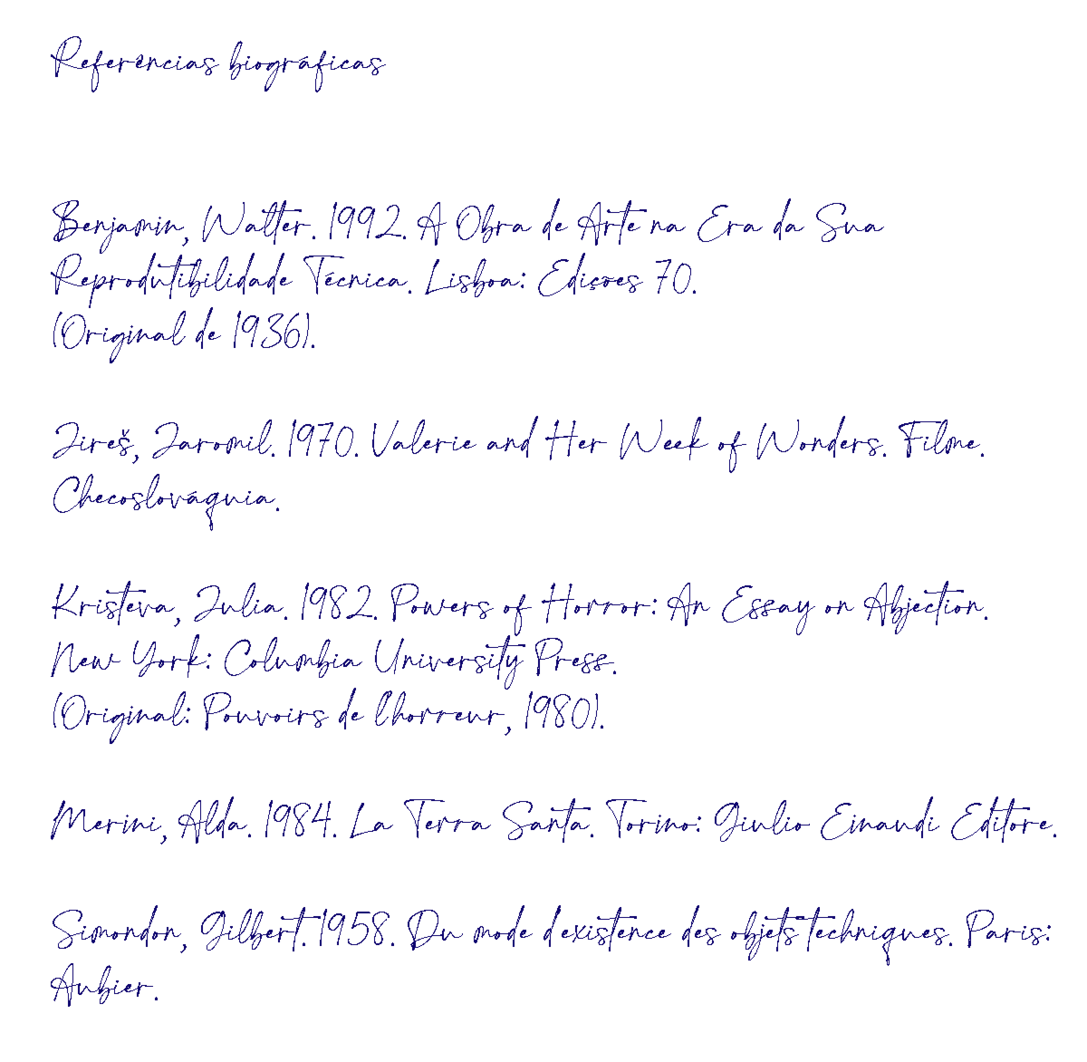 Referências biográficas
Benjamin, Walter. 1992. A Obra de Arte na Era da Sua
Reprodutibilidade Técnica. Lisboa: Edições 70.
(Original de 1936).
Jireš, Jaromil. 1970. Valerie and Her Week of Wonders. Filme.
Checoslováquia.
Kristeva, Julia. 1982. Powers of Horror: An Essay on Abjection.
New York: Columbia University Press.
(Original: Pouvoirs de l'horreur, 1980).
Merini, Alda. 1984. La Terra Santa. Torino: Giulio Einaudi Editore.
Simondon, Gilbert. 1958. Du mode d'existence des objets techniques. Paris:
Aubier.